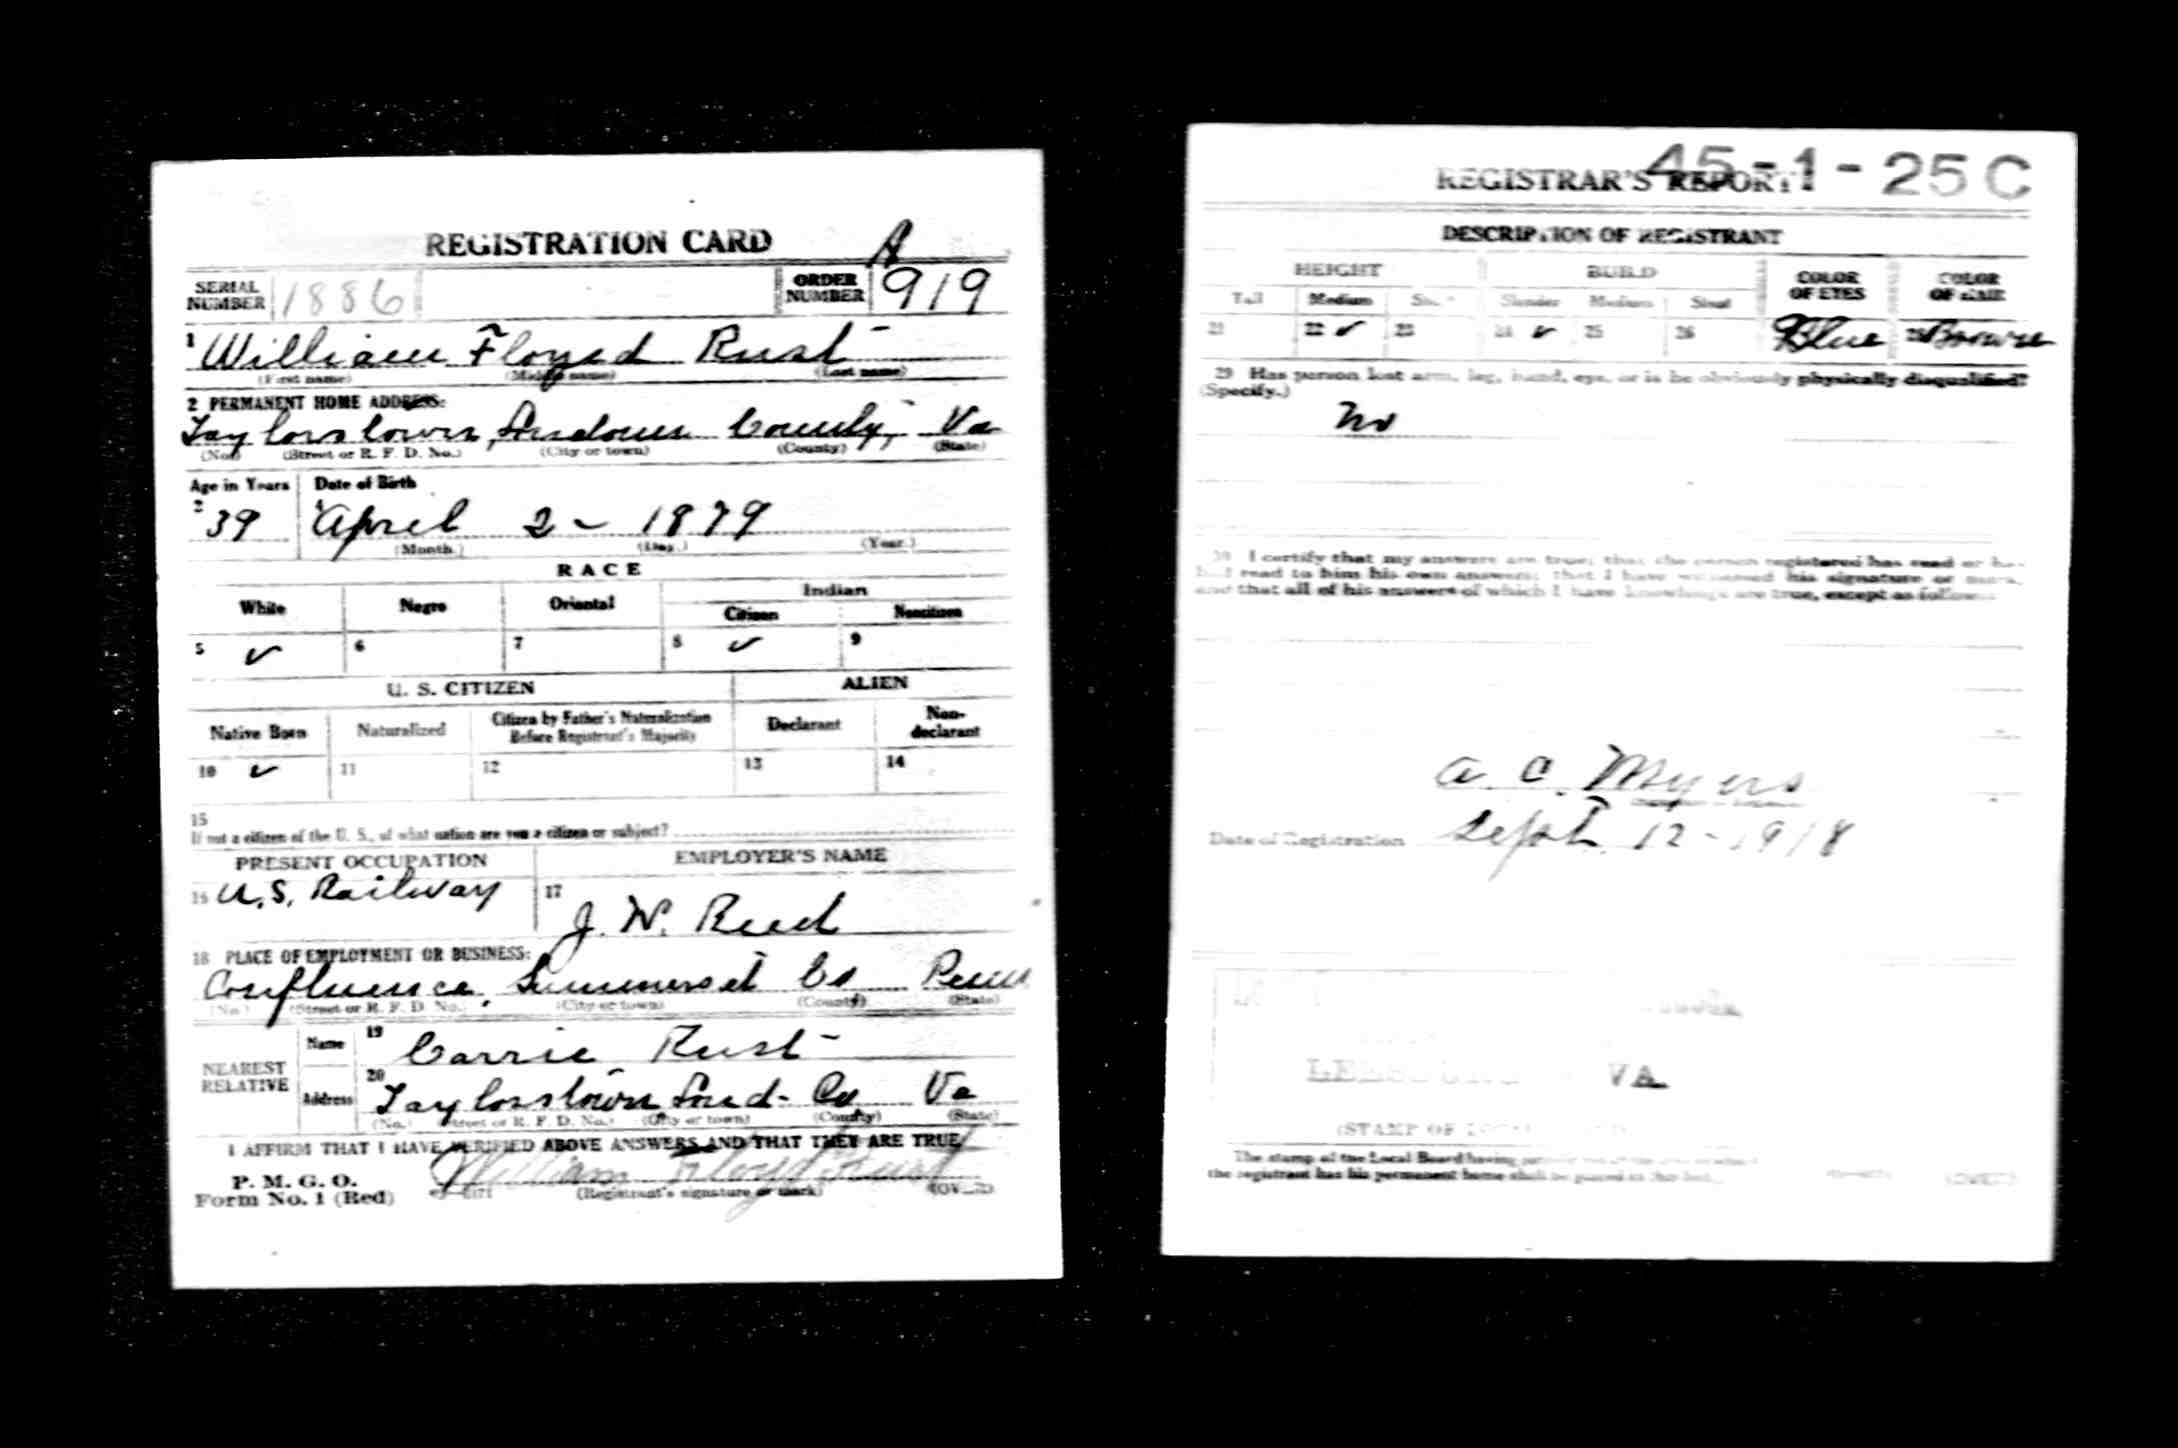 REGISTRATION CARD
SERIAL NUMBER 1886 ORDER NUMBER A 919
1 William Floyd Rust
(First name) (Middle name) (Last name)
2 PERMANENT HOME ADDRESS:
Taylorstown, Loudoun County, Va
(No.) (Street or R. F. D. No.) (City or town) (County) (State)
Age in Years Date of Birth
39 April 2 - 1879
(Month.) (Day.) (Year.)
RACE
White Negro Oriental Indian
Citizen Noncitizen
5 ✓ 6 7 8 ✓ 9
U. S. CITIZEN ALIEN
Native Born Naturalized Citizen by Father's Naturalization Before Registrant's Majority Declarant Non-declarant
10 ✓ 11 12 13 14
15
If not a citizen of the U. S., of what nation are you a citizen or subject?
PRESENT OCCUPATION EMPLOYER'S NAME
16 U.S. Railway 17 J. W. Reed
18 PLACE OF EMPLOYMENT OR BUSINESS:
Confluence, Summerset Co Penn
(No.) (Street or R. F. D. No.) (City or town) (County) (State)
NEAREST RELATIVE
Name 19 Carrie Rust
Address 20 Taylorstown Loud. Co Va
(No.) (Street or R. F. D. No.) (City or town) (County) (State)
I AFFIRM THAT I HAVE VERIFIED ABOVE ANSWERS AND THAT THEY ARE TRUE
P. M. G. O.
Form No. 1 (Red) William Floyd Rust
(Registrant's signature or mark) (OVER)
45-1-25 C
REGISTRAR'S REPORT
DESCRIPTION OF REGISTRANT
HEIGHT BUILD COLOR OF EYES COLOR OF HAIR
Tall Medium Slender Medium Stout
21 22 ✓ 23 24 ✓ 25 26 Blue 28 Brown
29 Has person lost arm, leg, hand, eye, or is he obviously physically disqualified?
(Specify.)
No
30 I certify that my answers are true; that the person registered has read or has
had read to him his own answers; that I have witnessed his signature or mark,
and that all of his answers of which I have knowledge are true, except as follows:
A. C. Myers
Date of Registration Sept. 12 - 1918
LEESBURG VA.
(STAMP OF LOCAL
The stamp of the Local Board having
the registrant has his permanent home shall be placed in this box.
(OVER)